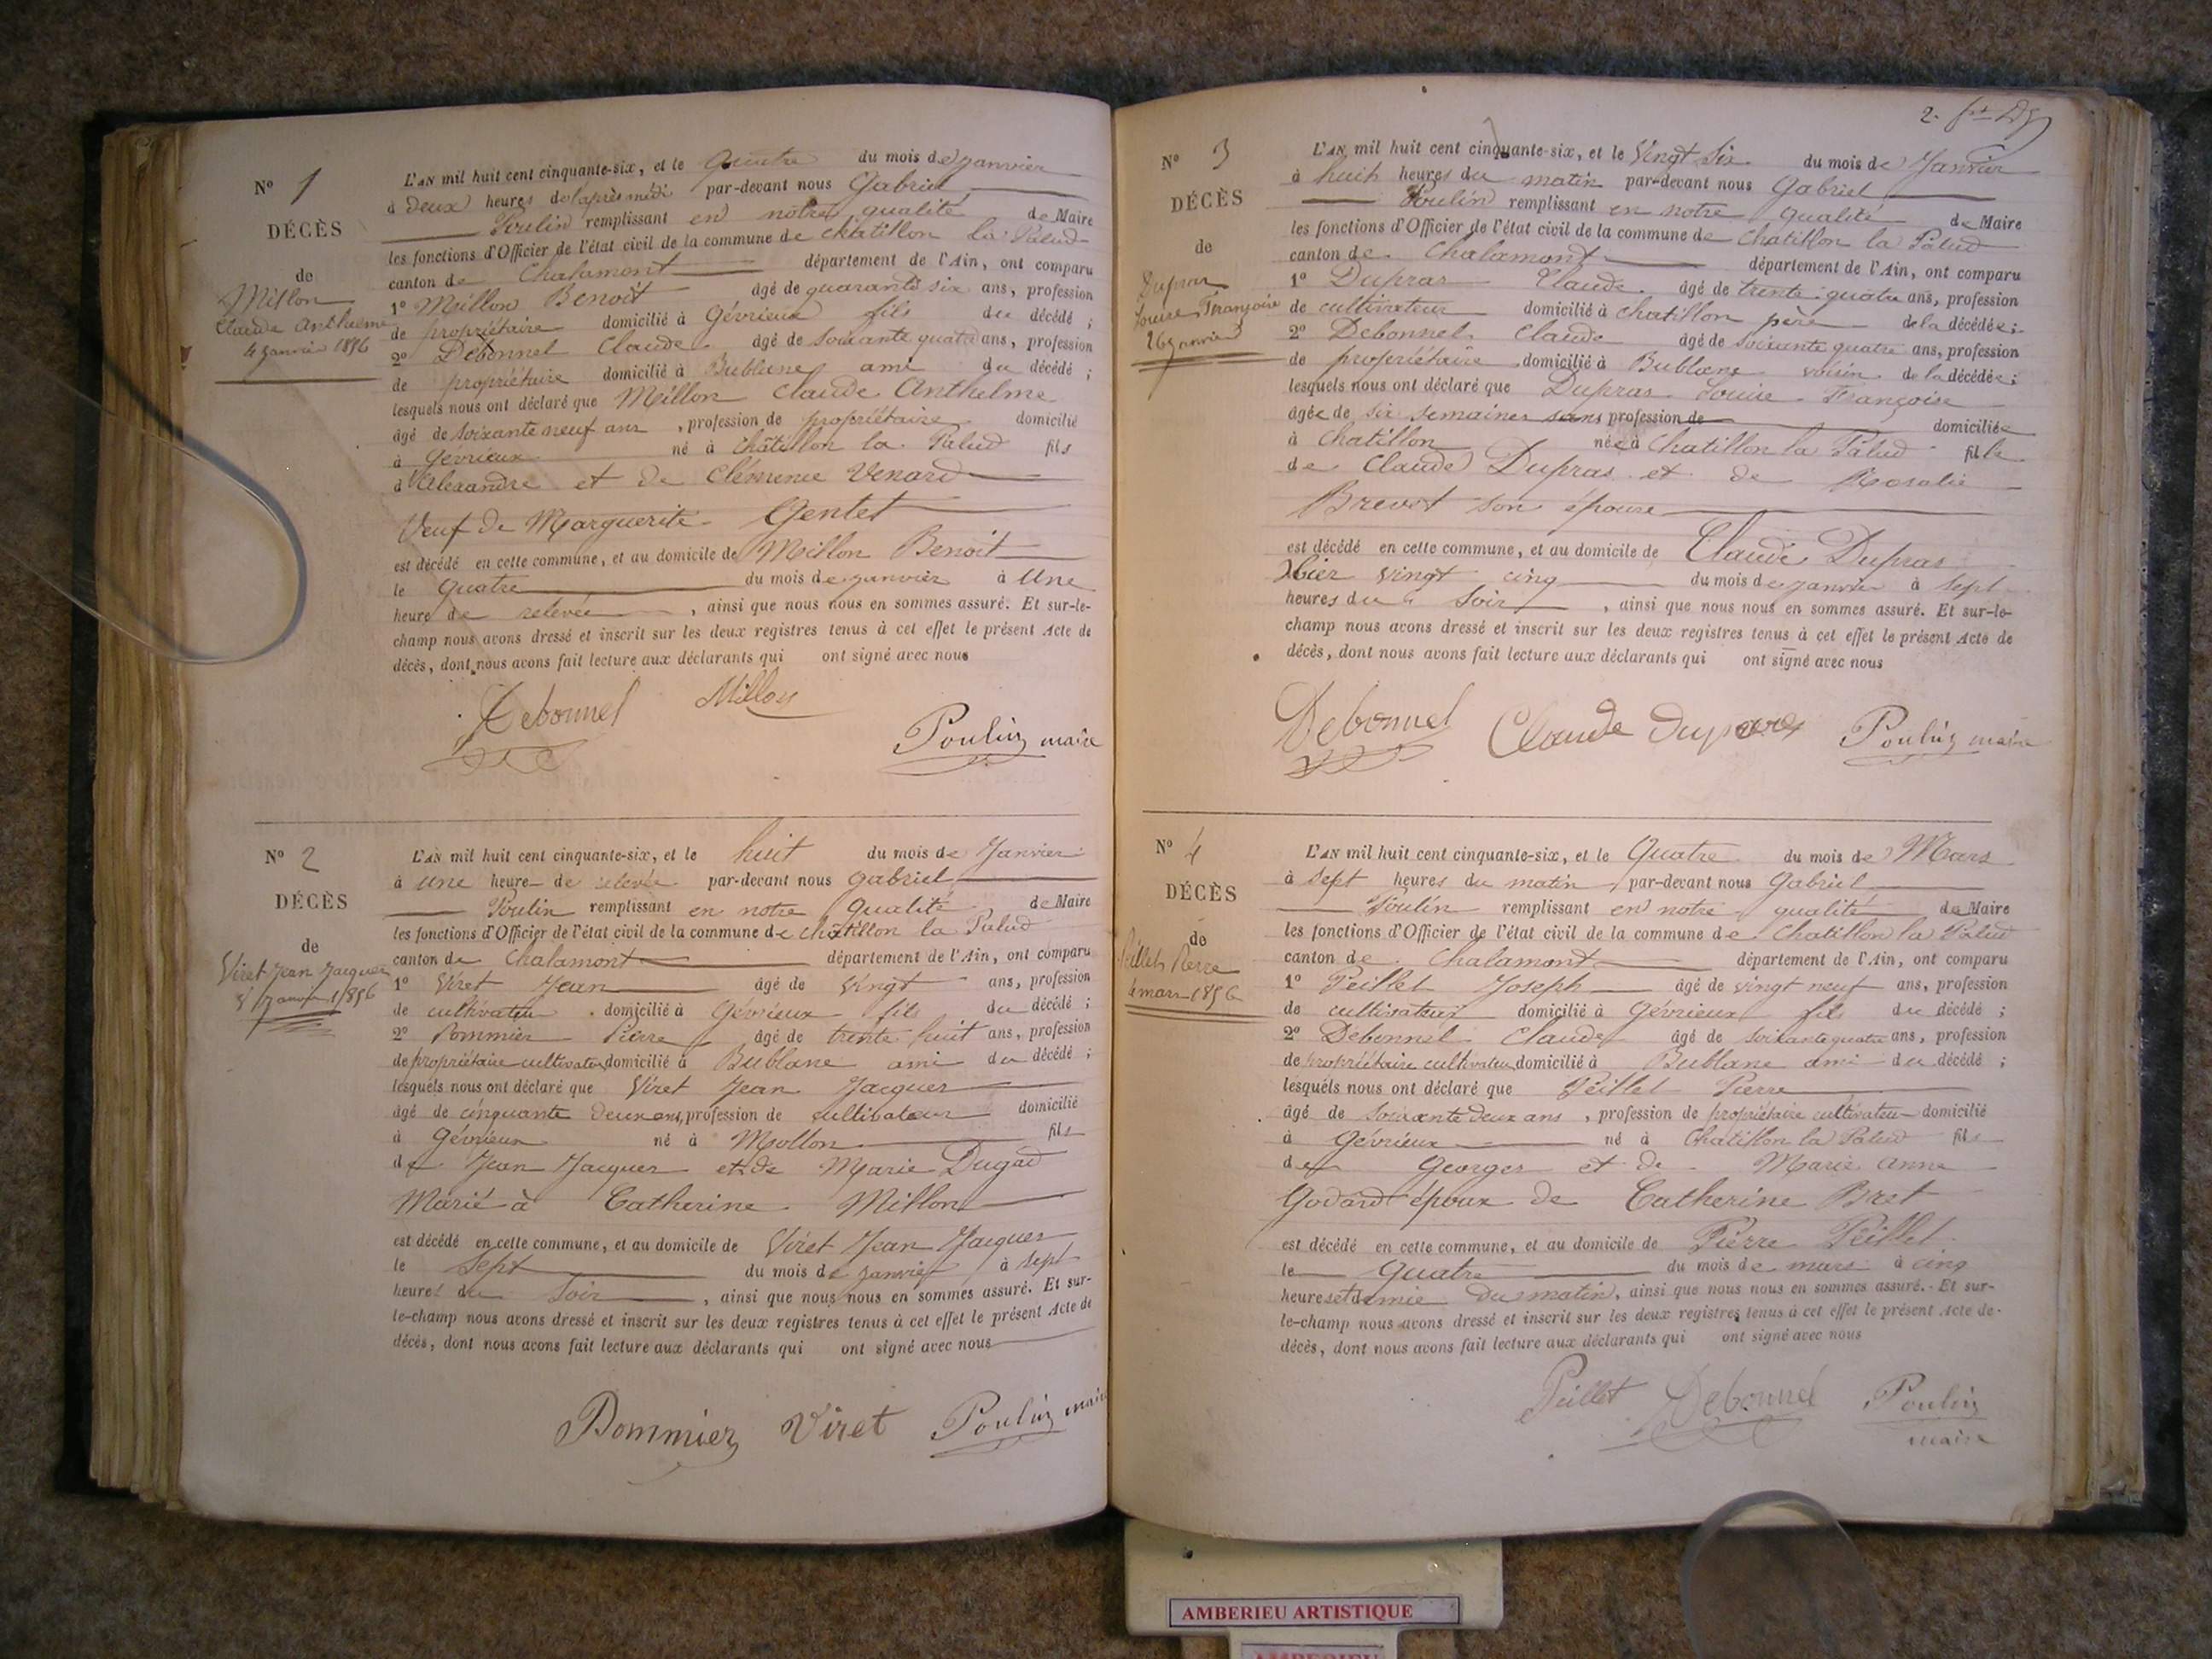 Nº 1
DÉCÈS
de
Millon
Claude Anthelme
4 janvier 1856
L'AN mil huit cent cinquante-six, et le Quatre du mois de janvier
à deux heures de l'après midi par-devant nous Gabriel
Poulin remplissant en notre qualité de Maire
les fonctions d'Officier de l'état civil de la commune de Chatillon la Palud
canton de Chalamont département de l'Ain, ont comparu
1º Millon Benoit âgé de quarante six ans, profession
de propriétaire domicilié à Gévrieux fils du décédé ;
2º Debonnel Claude âgé de soixante quatre ans, profession
de propriétaire domicilié à Bublane ami du décédé ;
lesquels nous ont déclaré que Millon Claude Anthelme
âgé de soixante neuf ans , profession de propriétaire domicilié
à Gévrieux né à Châtillon la Palud fils
d'Alexandre et de Clémence Venard
Veuf de Marguerite Gentet
est décédé en cette commune, et au domicile de Millon Benoit
le Quatre du mois de janvier à Une
heure de relevée , ainsi que nous nous en sommes assuré. Et sur-le-
champ nous avons dressé et inscrit sur les deux registres tenus à cet effet le présent Acte de
décès, dont nous avons fait lecture aux déclarants qui ont signé avec nous
Debonnel Millon
Poulin maire
Nº 2
DÉCÈS
de
Viret Jean Jacques
8 janvier 1856
L'AN mil huit cent cinquante-six, et le huit du mois de Janvier
à une heure de relevée par-devant nous Gabriel
Poulin remplissant en notre Qualité de Maire
les fonctions d'Officier de l'état civil de la commune de Châtillon la Palud
canton de Chalamont département de l'Ain, ont comparu
1º Viret Jean âgé de Vingt ans, profession
de cultivateur domicilié à Gévrieux fils du décédé ;
2º Pommier Pierre âgé de trente huit ans, profession
de propriétaire cultivateur domicilié à Bublane ami du décédé ;
lesquels nous ont déclaré que Viret Jean Jacques
âgé de cinquante deux ans, profession de cultivateur domicilié
à Gévrieux né à Mollon fils
de Jean Jacques et de Marie Dugad
Marié à Catherine Millon
est décédé en cette commune, et au domicile de Viret Jean Jacques
le Sept du mois de janvier à sept
heures du Soir , ainsi que nous nous en sommes assuré. Et sur-
le-champ nous avons dressé et inscrit sur les deux registres tenus à cet effet le présent Acte de
décès, dont nous avons fait lecture aux déclarants qui ont signé avec nous
Pommier Viret Poulin maire
2.
Nº 3
DÉCÈS
de
Dupras
Louise Françoise
26 janvier
L'AN mil huit cent cinquante-six, et le Vingt Six du mois de Janvier
à huit heures du matin par-devant nous Gabriel
Poulin remplissant en notre Qualité de Maire
les fonctions d'Officier de l'état civil de la commune de Chatillon la Palud
canton de Chalamont département de l'Ain, ont comparu
1º Dupras Claude âgé de trente quatre ans, profession
de cultivateur domicilié à Chatillon père de la décédée ;
2º Debonnel Claude âgé de soixante quatre ans, profession
de propriétaire domicilié à Bublane voisin de la décédée ;
lesquels nous ont déclaré que Dupras Louise Françoise
âgée de six semaines sans profession de domiciliée
à Chatillon née à Chatillon la Palud fille
de Claude Dupras et de Rosalie
Brevet son épouse
est décédé en cette commune, et au domicile de Claude Dupras
hier vingt cinq du mois de janvier à sept
heures du Soir , ainsi que nous nous en sommes assuré. Et sur-le-
champ nous avons dressé et inscrit sur les deux registres tenus à cet effet le présent Acte de
décès, dont nous avons fait lecture aux déclarants qui ont signé avec nous
Debonnel Claude Poulin maire
Nº 4
DÉCÈS
de
Peillet Pierre
4 mars 1856
L'AN mil huit cent cinquante-six, et le Quatre du mois de Mars
à sept heures du matin par-devant nous Gabriel
Poulin remplissant en notre qualité de Maire
les fonctions d'Officier de l'état civil de la commune de Chatillon la Palud
canton de Chalamont département de l'Ain, ont comparu
1º Peillet Joseph âgé de vingt neuf ans, profession
de cultivateur domicilié à Gévrieux fils du décédé ;
2º Debonnel Claude âgé de soixante quatre ans, profession
de propriétaire cultivateur domicilié à Bublane ami du décédé ;
lesquels nous ont déclaré que Peillet Pierre
âgé de soixante deux ans , profession de propriétaire cultivateur domicilié
à Gévrieux né à Chatillon la Palud fils
de Georges et de Marie Anne
Godard époux de Catherine Bret
est décédé en cette commune, et au domicile de Pierre Peillet
le Quatre du mois de mars à cinq
heures et demie du matin, ainsi que nous nous en sommes assuré. Et sur-
le-champ nous avons dressé et inscrit sur les deux registres tenus à cet effet le présent Acte de
décès, dont nous avons fait lecture aux déclarants qui ont signé avec nous
Peillet Debonnel Poulin
maire
AMBERIEU ARTISTIQUE
AMBERIEU